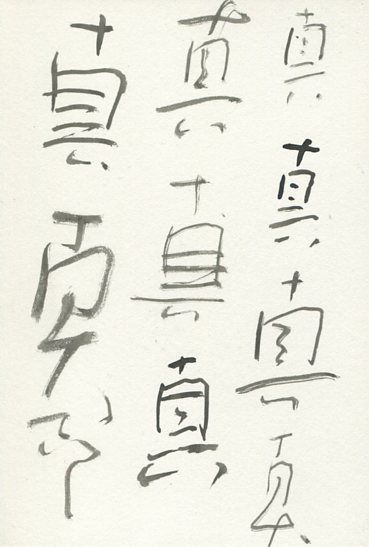 真真真真
真真真
真真